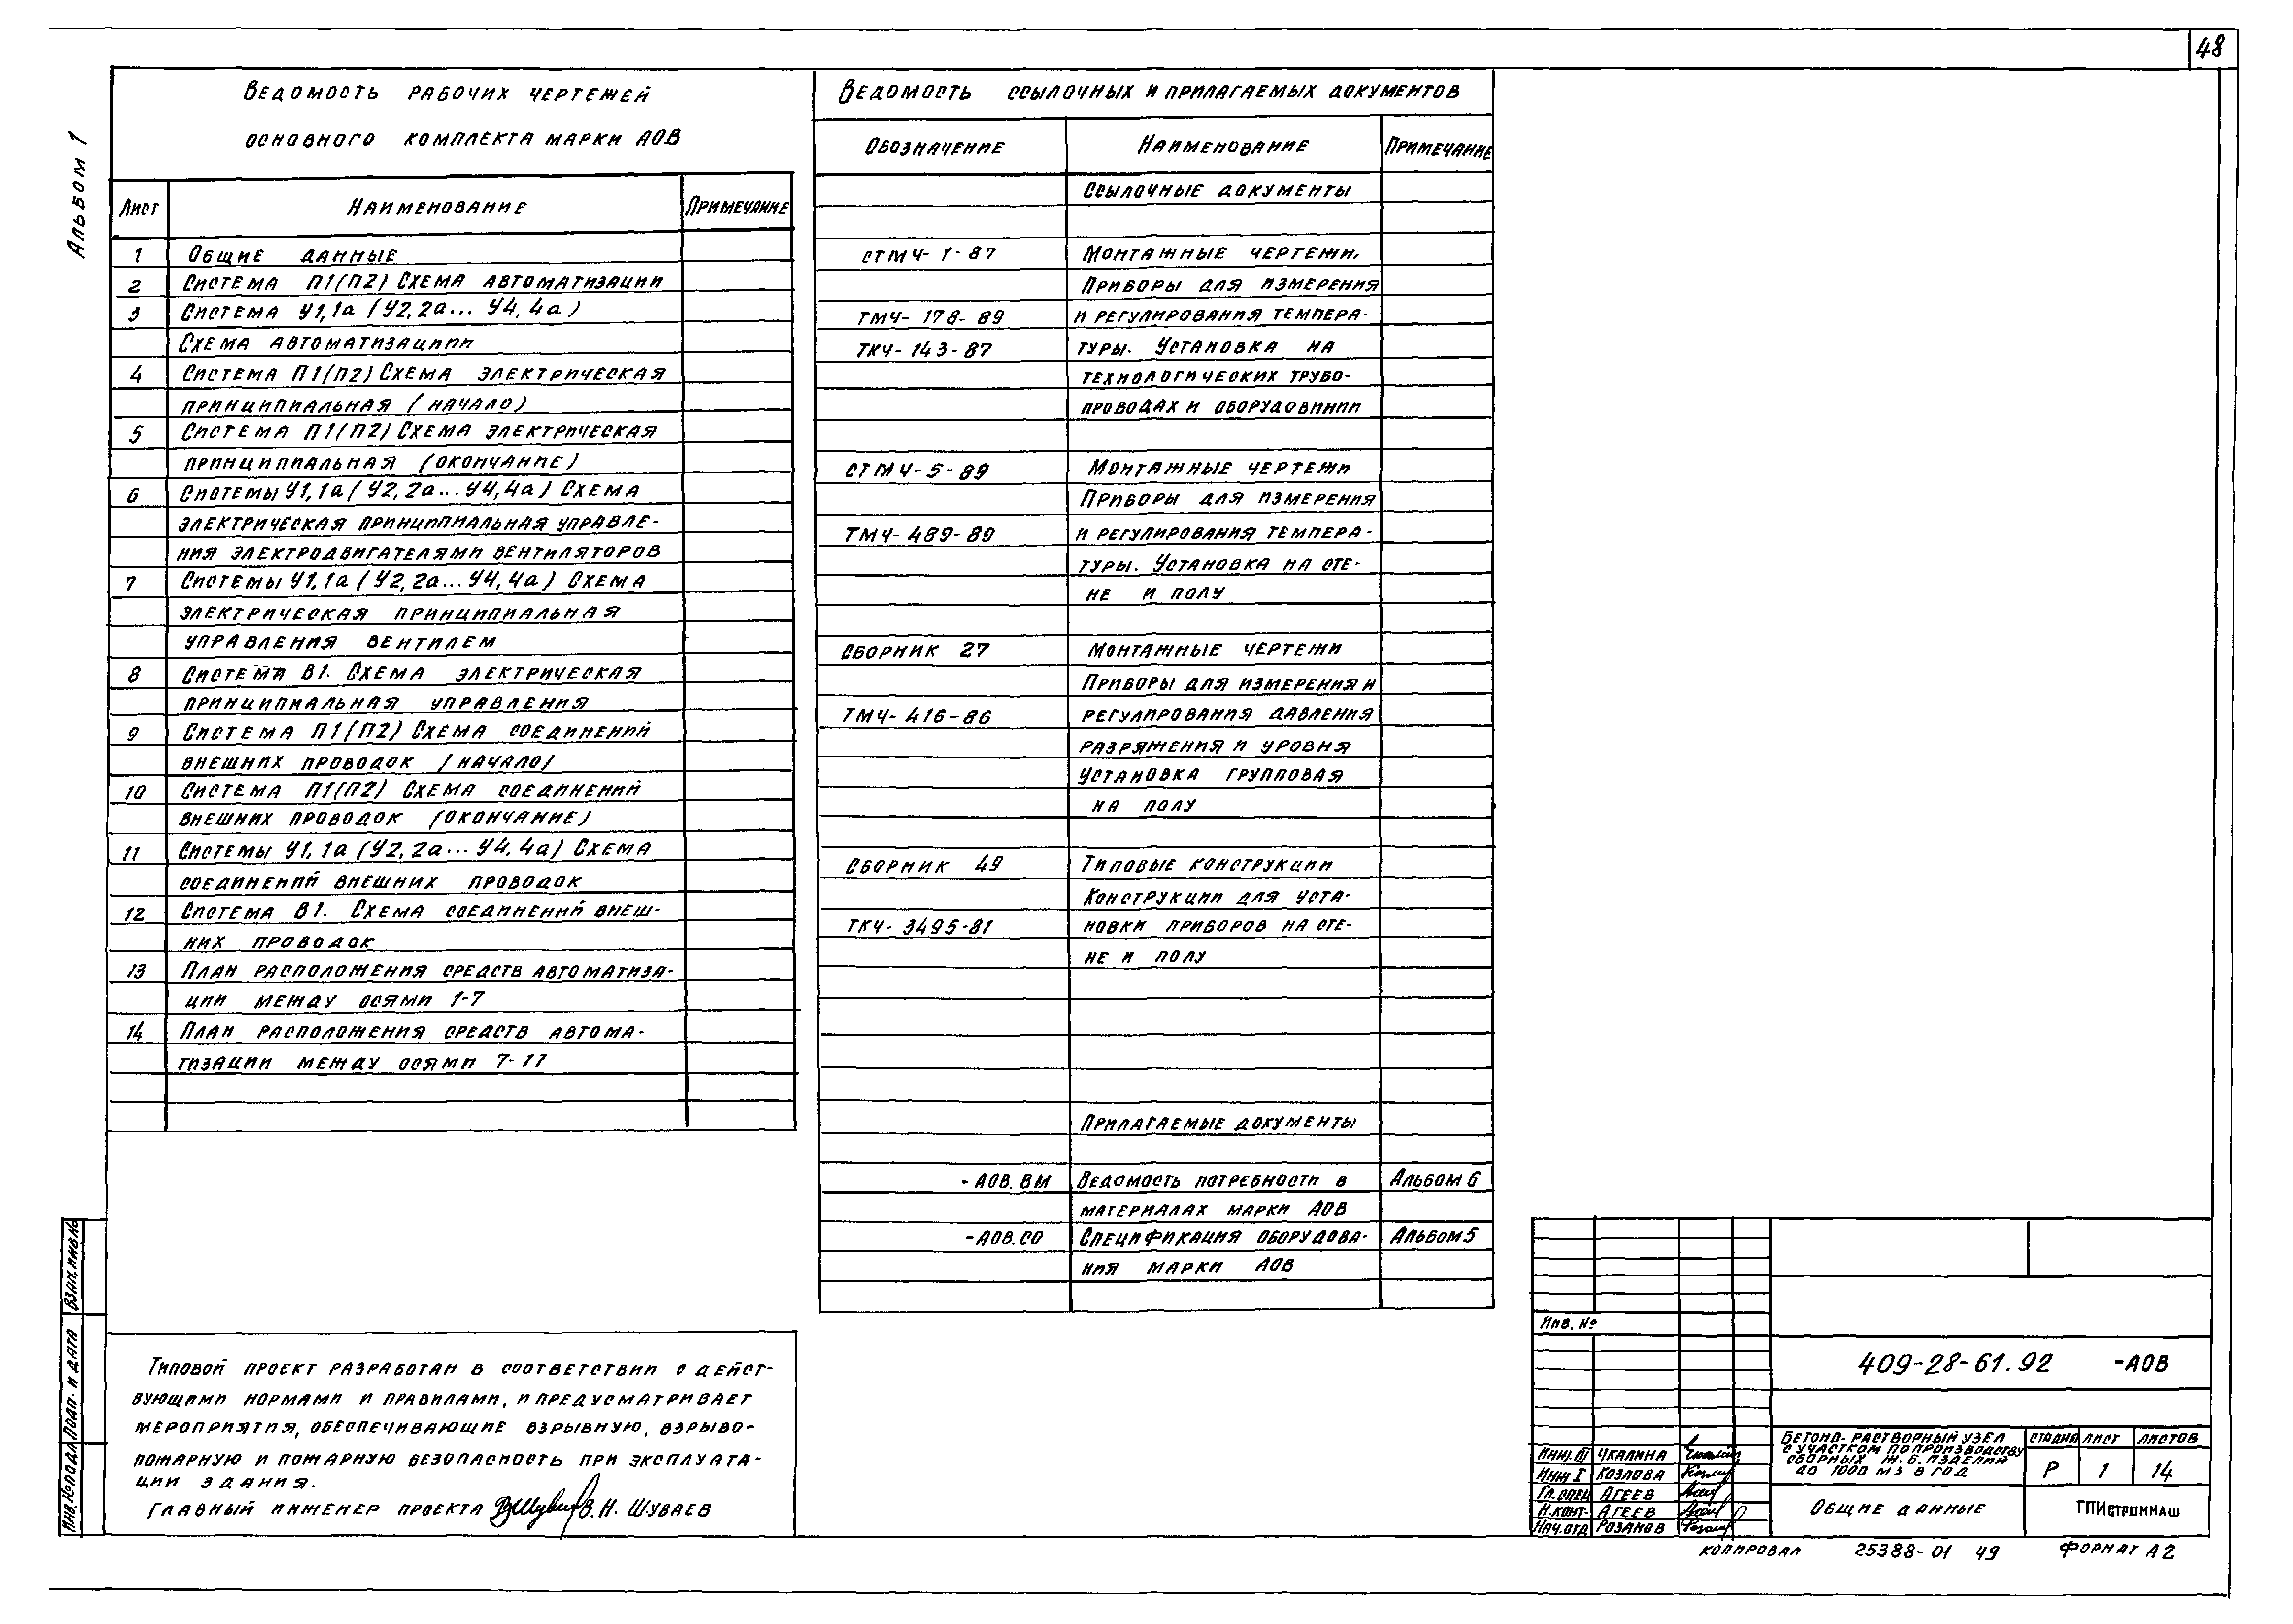 48
Альбом 1
Ведомость рабочих чертежей
основного комплекта марки АОВ
Лист Наименование Примечание
1 Общие данные
2 Система П1(П2) Схема автоматизации
3 Система У1,1а (У2,2а... У4,4а)
Схема автоматизациии
4 Система П1(П2) Схема электрическая
принципиальная (начало)
5 Система П1(П2) Схема электрическая
принципиальная (окончание)
6 Системы У1,1а (У2,2а...У4,4а) Схема
электрическая принципиальная управле-
ния электродвигателями вентиляторов
7 Системы У1,1а (У2,2а...У4,4а) Схема
электрическая принципиальная
управления вентилем
8 Система В1. Схема электрическая
принципиальная управления
9 Система П1(П2) Схема соединений
внешних проводок (начало)
10 Система П1(П2) Схема соединений
внешних проводок (окончание)
11 Системы У1,1а (У2,2а... У4,4а) Схема
соединений внешних проводок
12 Система В1. Схема соединений внеш-
них проводок
13 План расположения средств автоматиза-
ции между осями 1-7
14 План расположения средств автома-
тизации между осями 7-11
Ведомость ссылочных и прилагаемых документов
Обозначение Наименование Примечание
Ссылочные документы
СТМЧ-1-87 Монтажные чертежи.
Приборы для измерения
ТМЧ-178-89 и регулирования темпера-
ТКЧ-143-87 туры. Установка на
технологических трубо-
проводах и оборудовинии
СТМЧ-5-89 Монтажные чертежи
Приборы для измерения
ТМЧ-489-89 и регулирования темпера-
туры. Установка на сте-
не и полу
Сборник 27 Монтажные чертежи
Приборы для измерения и
ТМЧ-416-86 регулирования давления
разряжения и уровня
Установка групповая
на полу
Сборник 49 Типовые конструкции
Конструкции для уста-
ТКЧ-3495-81 новки приборов на сте-
не и полу
Прилагаемые документы
-АОВ.ВМ Ведомость потребности в Альбом 6
материалах марки АОВ
-АОВ.СО Спецификация оборудова- Альбом 5
ния марки АОВ
Типовой проект разработан в соответствии с дейст-
вующими нормами и правилами, и предусматривает
мероприятия, обеспечивающие взрывную, взрыво-
пожарную и пожарную безопасность при эксплуата-
ции здания.
Главный инженер проекта В.Н. Шуваев
Взам. инв.№
Подп. и дата
Инв.№ подл
Инв. №
409-28-61.92 -АОВ
Бетоно-растворный узел
с участком по производству
сборных ж.б. изделий
до 1000 м3 в год
стадия лист листов
Р 1 14
Инж.III Чкалина
Инж I Козлова
Гл.спец Агеев
Н.конт. Агеев
Нач.отд Розанов
Общие данные
ТПИстроммаш
Копировал 25388-01 49 Формат А2